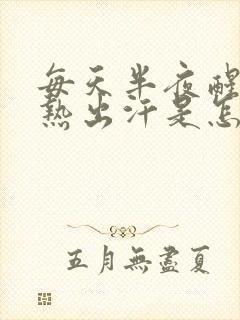 每天半夜醒
热出汗是怎
五月無盡夏